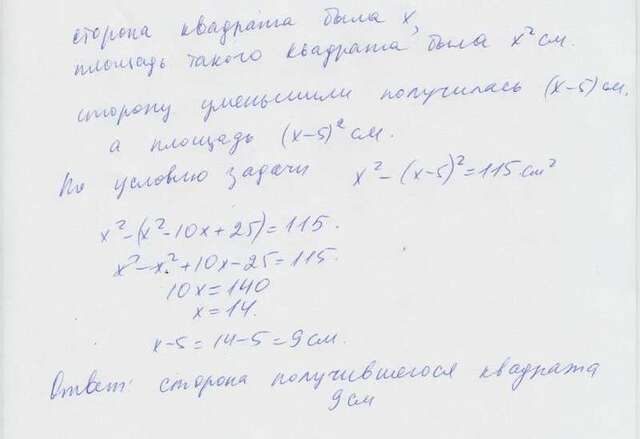 сторона квадрата была x,
площадь такого квадрата была x² см.
сторону уменьшили получилась (x-5) см.
а площадь (x-5)² см.
По условию задачи x² - (x-5)² = 115 см²
x² - (x² - 10x + 25) = 115.
x² - x² + 10x - 25 = 115.
10x = 140
x = 14.
x - 5 = 14 - 5 = 9 см.
Ответ: сторона получившегося квадрата
9 см